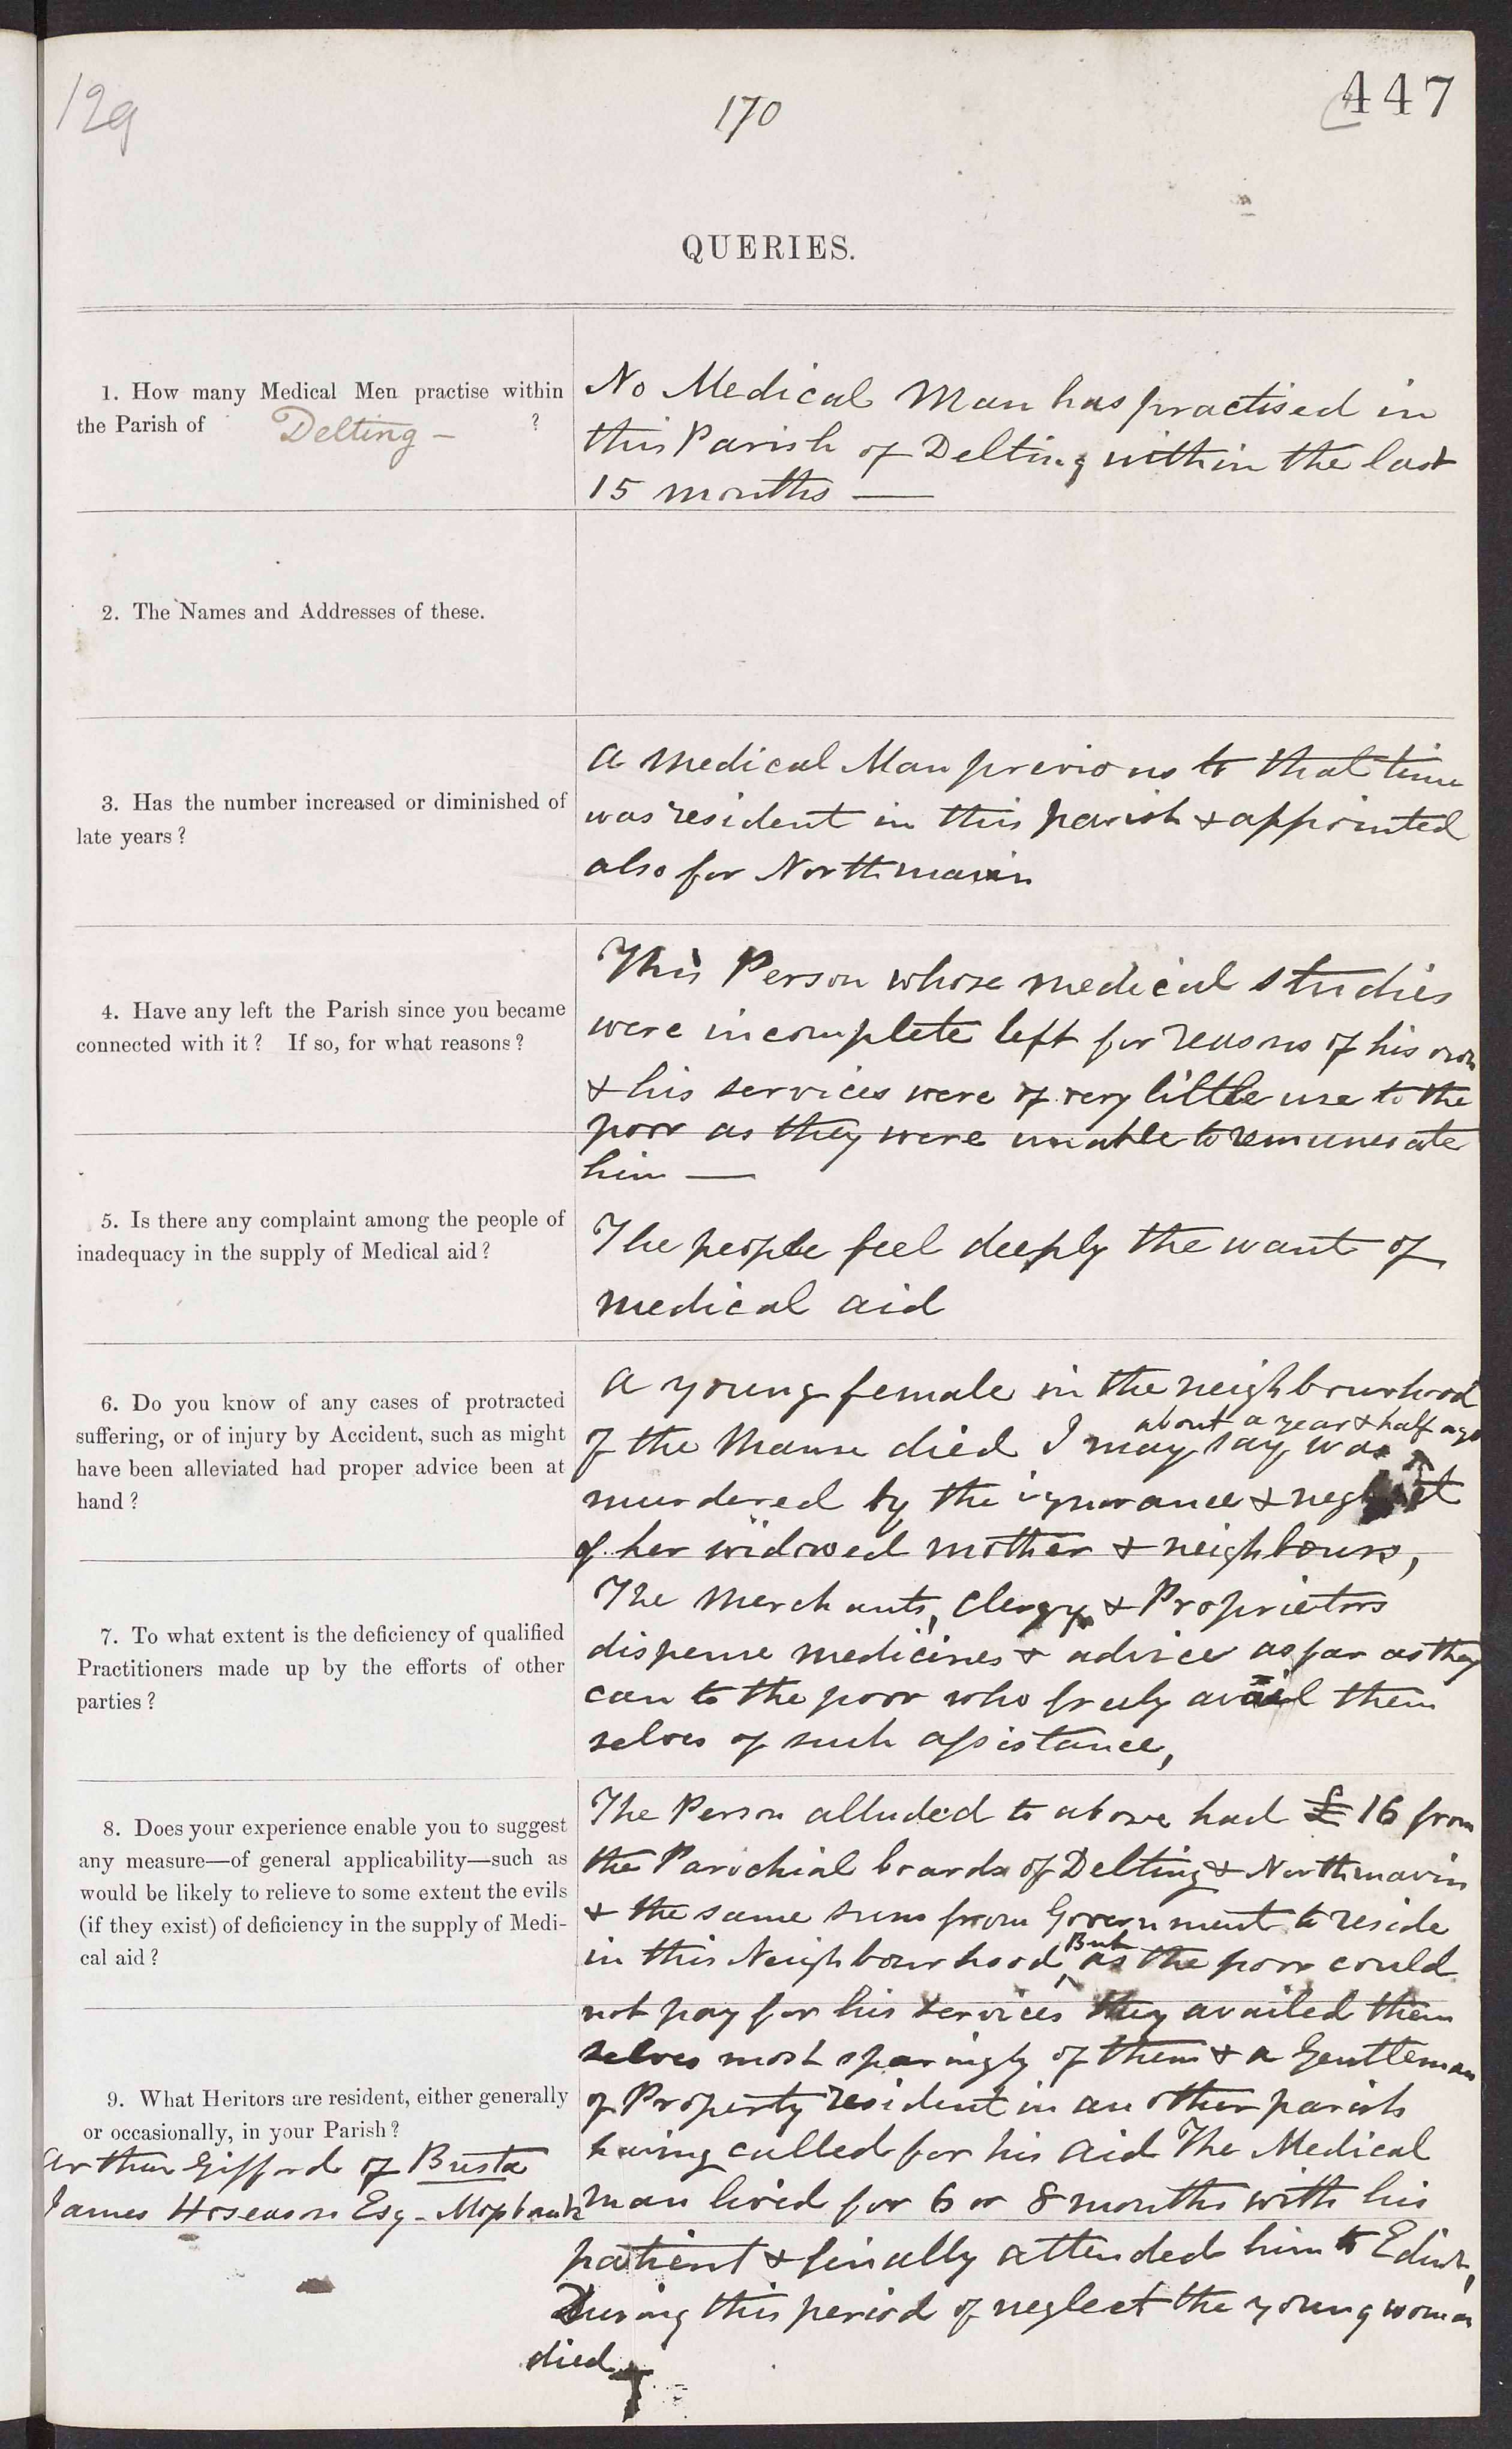 129
170
447
QUERIES.
1. How many Medical Men practise within
the Parish of Delting - ?
No Medical Man has practised in
this Parish of Delting within the last
15 months —
2. The Names and Addresses of these.
3. Has the number increased or diminished of
late years?
A medical Man previous to that time
was resident in this parish & appointed
also for Northmavin
4. Have any left the Parish since you became
connected with it? If so, for what reasons?
This Person whose medical studies
were incomplete left for reasons of his own
& his services were of very little use to the
poor as they were unable to remunerate
him —
5. Is there any complaint among the people of
inadequacy in the supply of Medical aid?
The people feel deeply the want of
medical aid
6. Do you know of any cases of protracted
suffering, or of injury by Accident, such as might
have been alleviated had proper advice been at
hand?
A young female in the neighbourhood
about a year & half ago
of the Manse died I may say was
murdered by the ignorance & neglect
of her widowed mother & neighbours,
7. To what extent is the deficiency of qualified
Practitioners made up by the efforts of other
parties?
The Merchants, Clergy & Proprietors
dispense medicines & advice as far as they
can to the poor who freely avail them
selves of such assistance,
8. Does your experience enable you to suggest
any measure—of general applicability—such as
would be likely to relieve to some extent the evils
(if they exist) of deficiency in the supply of Medi-
cal aid?
The Person alluded to above had £16 from
the Parochial boards of Delting & Northmavin
& the same sum from Government to reside
in this Neighbourhood, But as the poor could
not pay for his services they availed them
selves most sparingly of them & a Gentleman
of Property resident in an other parish
having called for his aid The Medical
man lived for 6 or 8 months with his
patient & finally attended him to Edinr,
During this period of neglect the young woman
died
9. What Heritors are resident, either generally
or occasionally, in your Parish?
Arthur Gifford of Busta
James Hoseason Esq - Mossbank